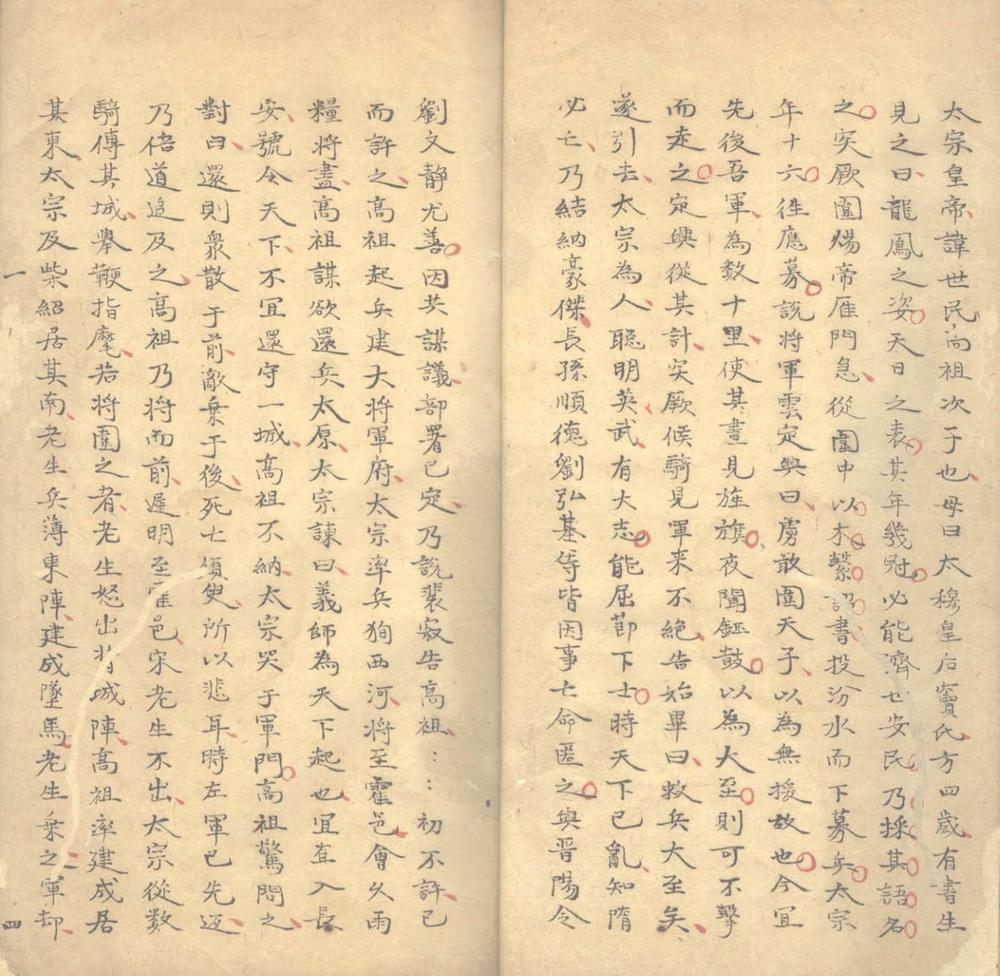 太宗皇帝諱世民高祖次子也母曰太穆皇后竇氏方四歲有書生
見之曰龍鳳之姿天日之表其年幾冠必能濟世安民乃採其語名
之突厥圍煬帝雁門急從圍中以木繫詔書投汾水而下募兵太宗
年十六往應募說將軍雲定興曰虜敢圍天子以為無援故也今宜
先後吾軍為数十里使其晝見旌旗夜聞鉦鼓以為大至則可不擊
而走之定興從其計突厥候騎見軍来不絶告始畢曰救兵大至矣
遂引去太宗為人聰明英武有大志能屈節下士時天下已亂知隋
必亡乃結納豪傑長孫順德劉弘基等皆因事亡命匿之與晋陽令
劉文靜尤善因共謀議部署已定乃說裴寂告高祖:: 初不許已
而許之高祖起兵建大將軍府太宗率兵狥西河將至霍邑會久雨
糧將盡高祖謀欲還兵太原太宗諫曰義師為天下起也宜直入長
安號令天下不宜還守一城高祖不納太宗哭于軍門高祖驚問之
對曰還則衆散于前敵乗于後死亡須臾所以悲耳時左軍已先返
乃倍道追及之高祖乃將而前遲明至霍邑宋老生不出太宗從数
騎傳其城舉鞭指麾若將圍之者老生怒出背城陣高祖率建成居
其東太宗及柴紹居其南老生兵薄東陣建成墜馬老生乗之軍却
一
四